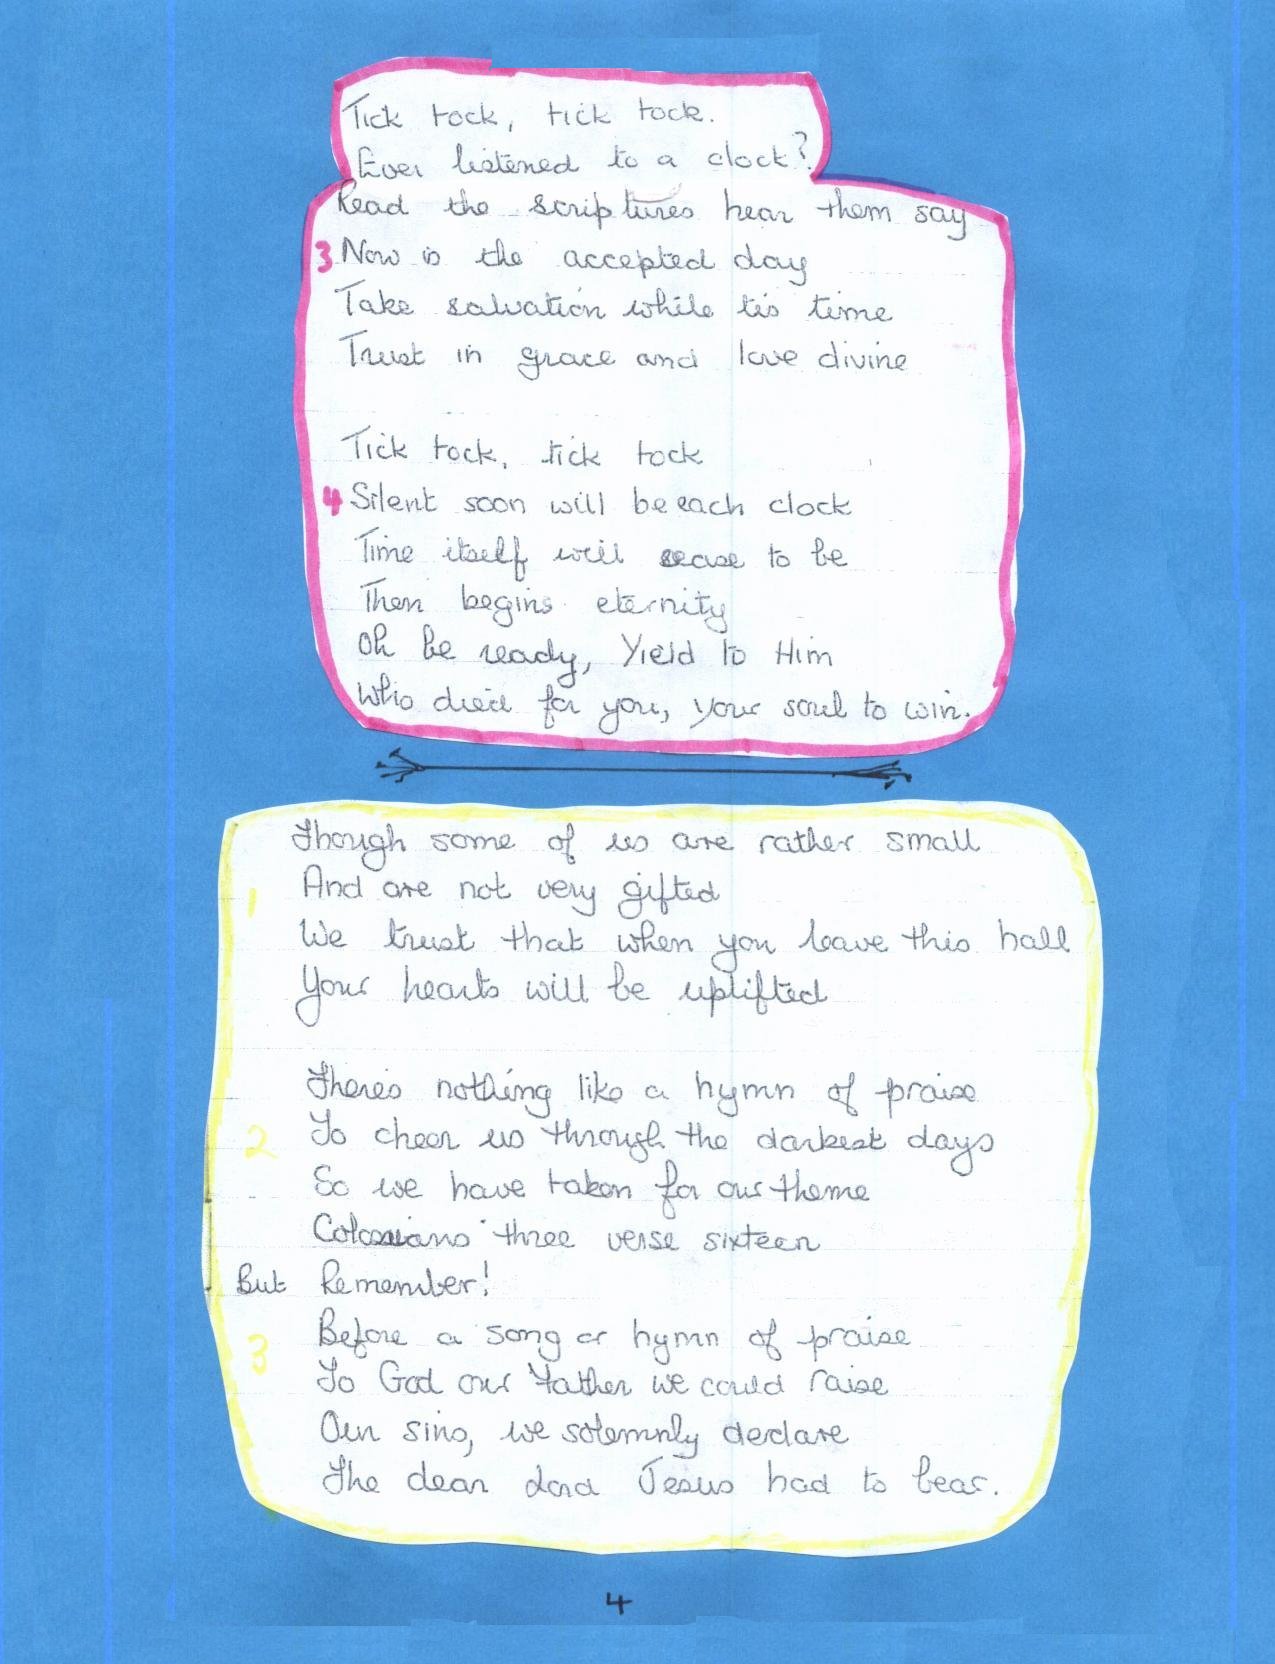 Tick tock, tick tock.
Ever listened to a clock?
Read the scriptures hear them say
3 Now is the accepted day
Take salvation while tis time
Trust in grace and love divine
Tick tock, tick tock
4 Silent soon will be each clock
Time itself will cease to be
Then begins eternity
Oh be ready, Yield to Him
Who died for you, your soul to win.
Though some of us are rather small
1 And are not very gifted
We trust that when you leave this hall
Your hearts will be uplifted
There's nothing like a hymn of praise
2 To cheer us through the darkest days
So we have taken for our theme
Colossians three verse sixteen
But Remember!
3 Before a song or hymn of praise
To God our Father we could raise
Our sins, we solemnly declare
The dear Lord Jesus had to bear.
4